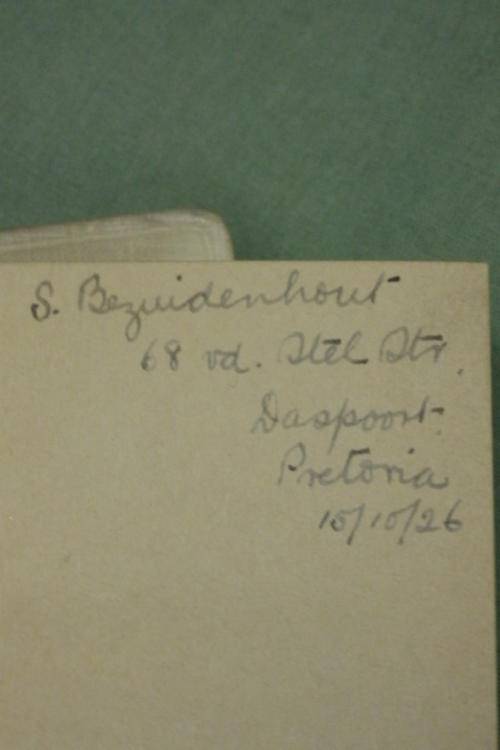 S. Bezuidenhout
68 vd. Stel Str.
Daspoort.
Pretoria
15/10/26